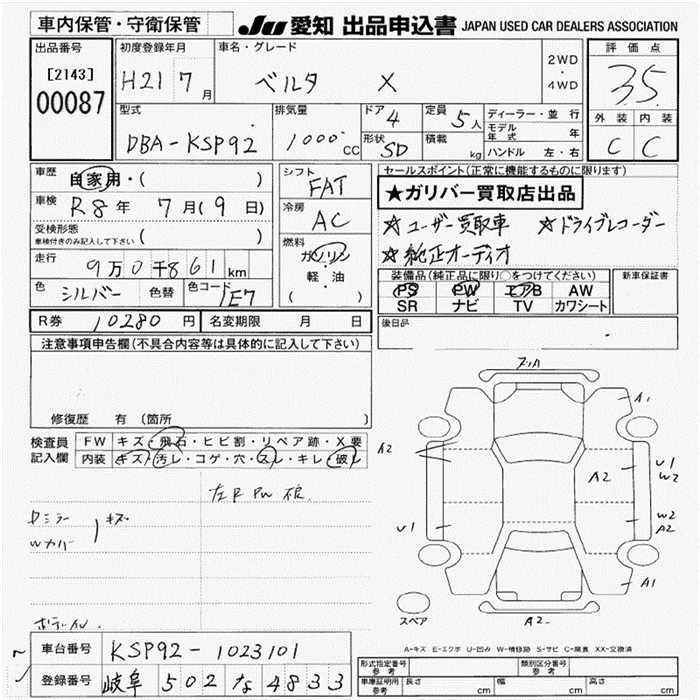 車内保管・守衛保管
JU 愛知 出品申込書 JAPAN USED CAR DEALERS ASSOCIATION
出品番号 初度登録年月 車名・グレード 評価点
[2143] H21 7月 ベルタ X 2WD・4WD 35
00087
型式 排気量 ドア 4 定員 5人 ディーラー・並行 外装 内装
DBA-KSP92 1000cc 形状 SD 積載 kg モデル年式 年 C C
ハンドル 左・右
車歴 自家用・( ) シフト FAT セールスポイント(正常に機能するものに限ります)
★ガリバー買取店出品
車検 R8年 7月(9日) 冷房 AC ☆ユーザー買取車 ☆ドライブレコーダー
受検形態 車検付きのみ記入して下さい ( ) 燃料 ガソリン・軽油 ( ) ☆純正オーディオ
走行 9万0千861km 装備品(純正品に限り○をつけてください) 新車保証書
色 シルバー 色替 色コード 1E7 PS PW エアB AW
SR ナビ TV カワシート
R券 10280円 名変期限 月 日 後日品
注意事項申告欄(不具合内容等は具体的に記入して下さい)
修復歴 有 (箇所
検査員記入欄 FW キズ・飛石・ヒビ割・リペア跡・X要
内装 キズ・汚レ・コゲ・穴・スレ・キレ・破レ
左R PW
Dミラー キズ
Wカバー
A1
A2
A2
U1
W2
U1
W2
A2
A1
A2
スペア
A-キズ E-エクボ U-凹み W-補修跡 S-サビ C-腐食 XX-交換済
車台番号 KSP92-1023101
登録番号 岐阜 502 な 4833
形式指定番号 参考 類別区分番号 参考
車庫証明用 参考 長さ cm 幅 cm 高さ cm